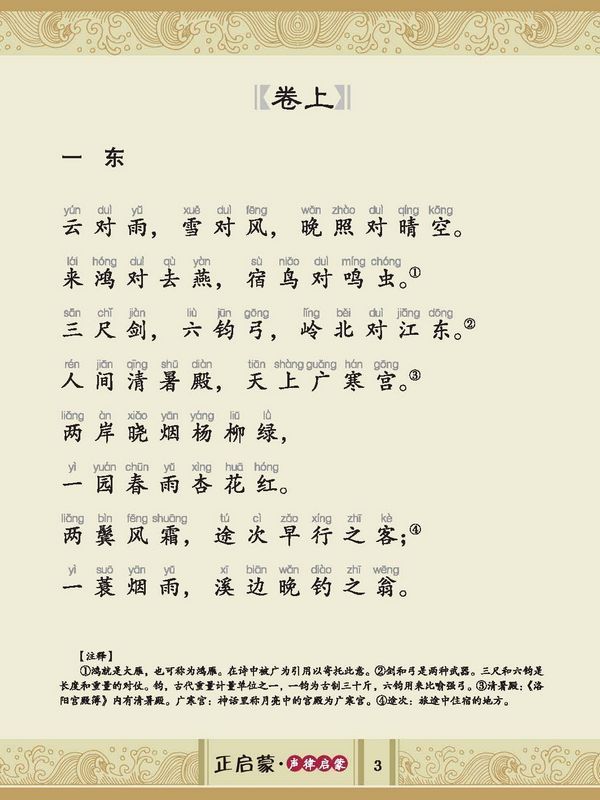 卷上
一 东
yún duì yǔ xuě duì fēng wǎn zhào duì qíng kōng
云对雨，雪对风，晚照对晴空。
lái hóng duì qù yàn sù niǎo duì míng chóng
来鸿对去燕，宿鸟对鸣虫。①
sān chǐ jiàn liù jūn gōng lǐng běi duì jiāng dōng
三尺剑，六钧弓，岭北对江东。②
rén jiān qīng shǔ diàn tiān shàng guǎng hán gōng
人间清暑殿，天上广寒宫。③
liǎng àn xiǎo yān yáng liǔ lǜ
两岸晓烟杨柳绿，
yì yuán chūn yǔ xìng huā hóng
一园春雨杏花红。
liǎng bìn fēng shuāng tú cì zǎo xíng zhī kè
两鬓风霜，途次早行之客；④
yì suō yān yǔ xī biān wǎn diào zhī wēng
一蓑烟雨，溪边晚钓之翁。
【注释】
①鸿就是大雁，也可称为鸿雁。在诗中被广为引用以寄托此意。②剑和弓是两种武器。三尺和六钧是
长度和重量的对仗。钧，古代重量计量单位之一，一钧为古制三十斤，六钧用来比喻强弓。③清暑殿：《洛
阳宫殿簿》内有清暑殿。广寒宫：神话里称月亮中的宫殿为广寒宫。④途次：旅途中住宿的地方。
正启蒙·声律启蒙 3